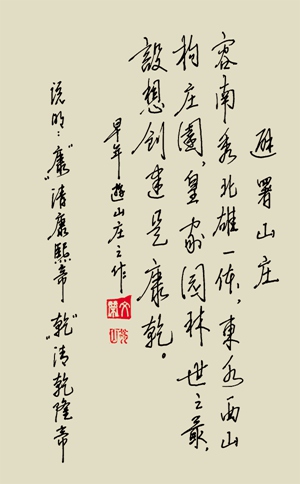 避署山庄
容南秀北雄一体，東水西山
构庄園，皇家园林世之最，
設想创建是康乾。
早年遊山庄之作
说明：“康”清康熙帝“乾”清乾隆帝